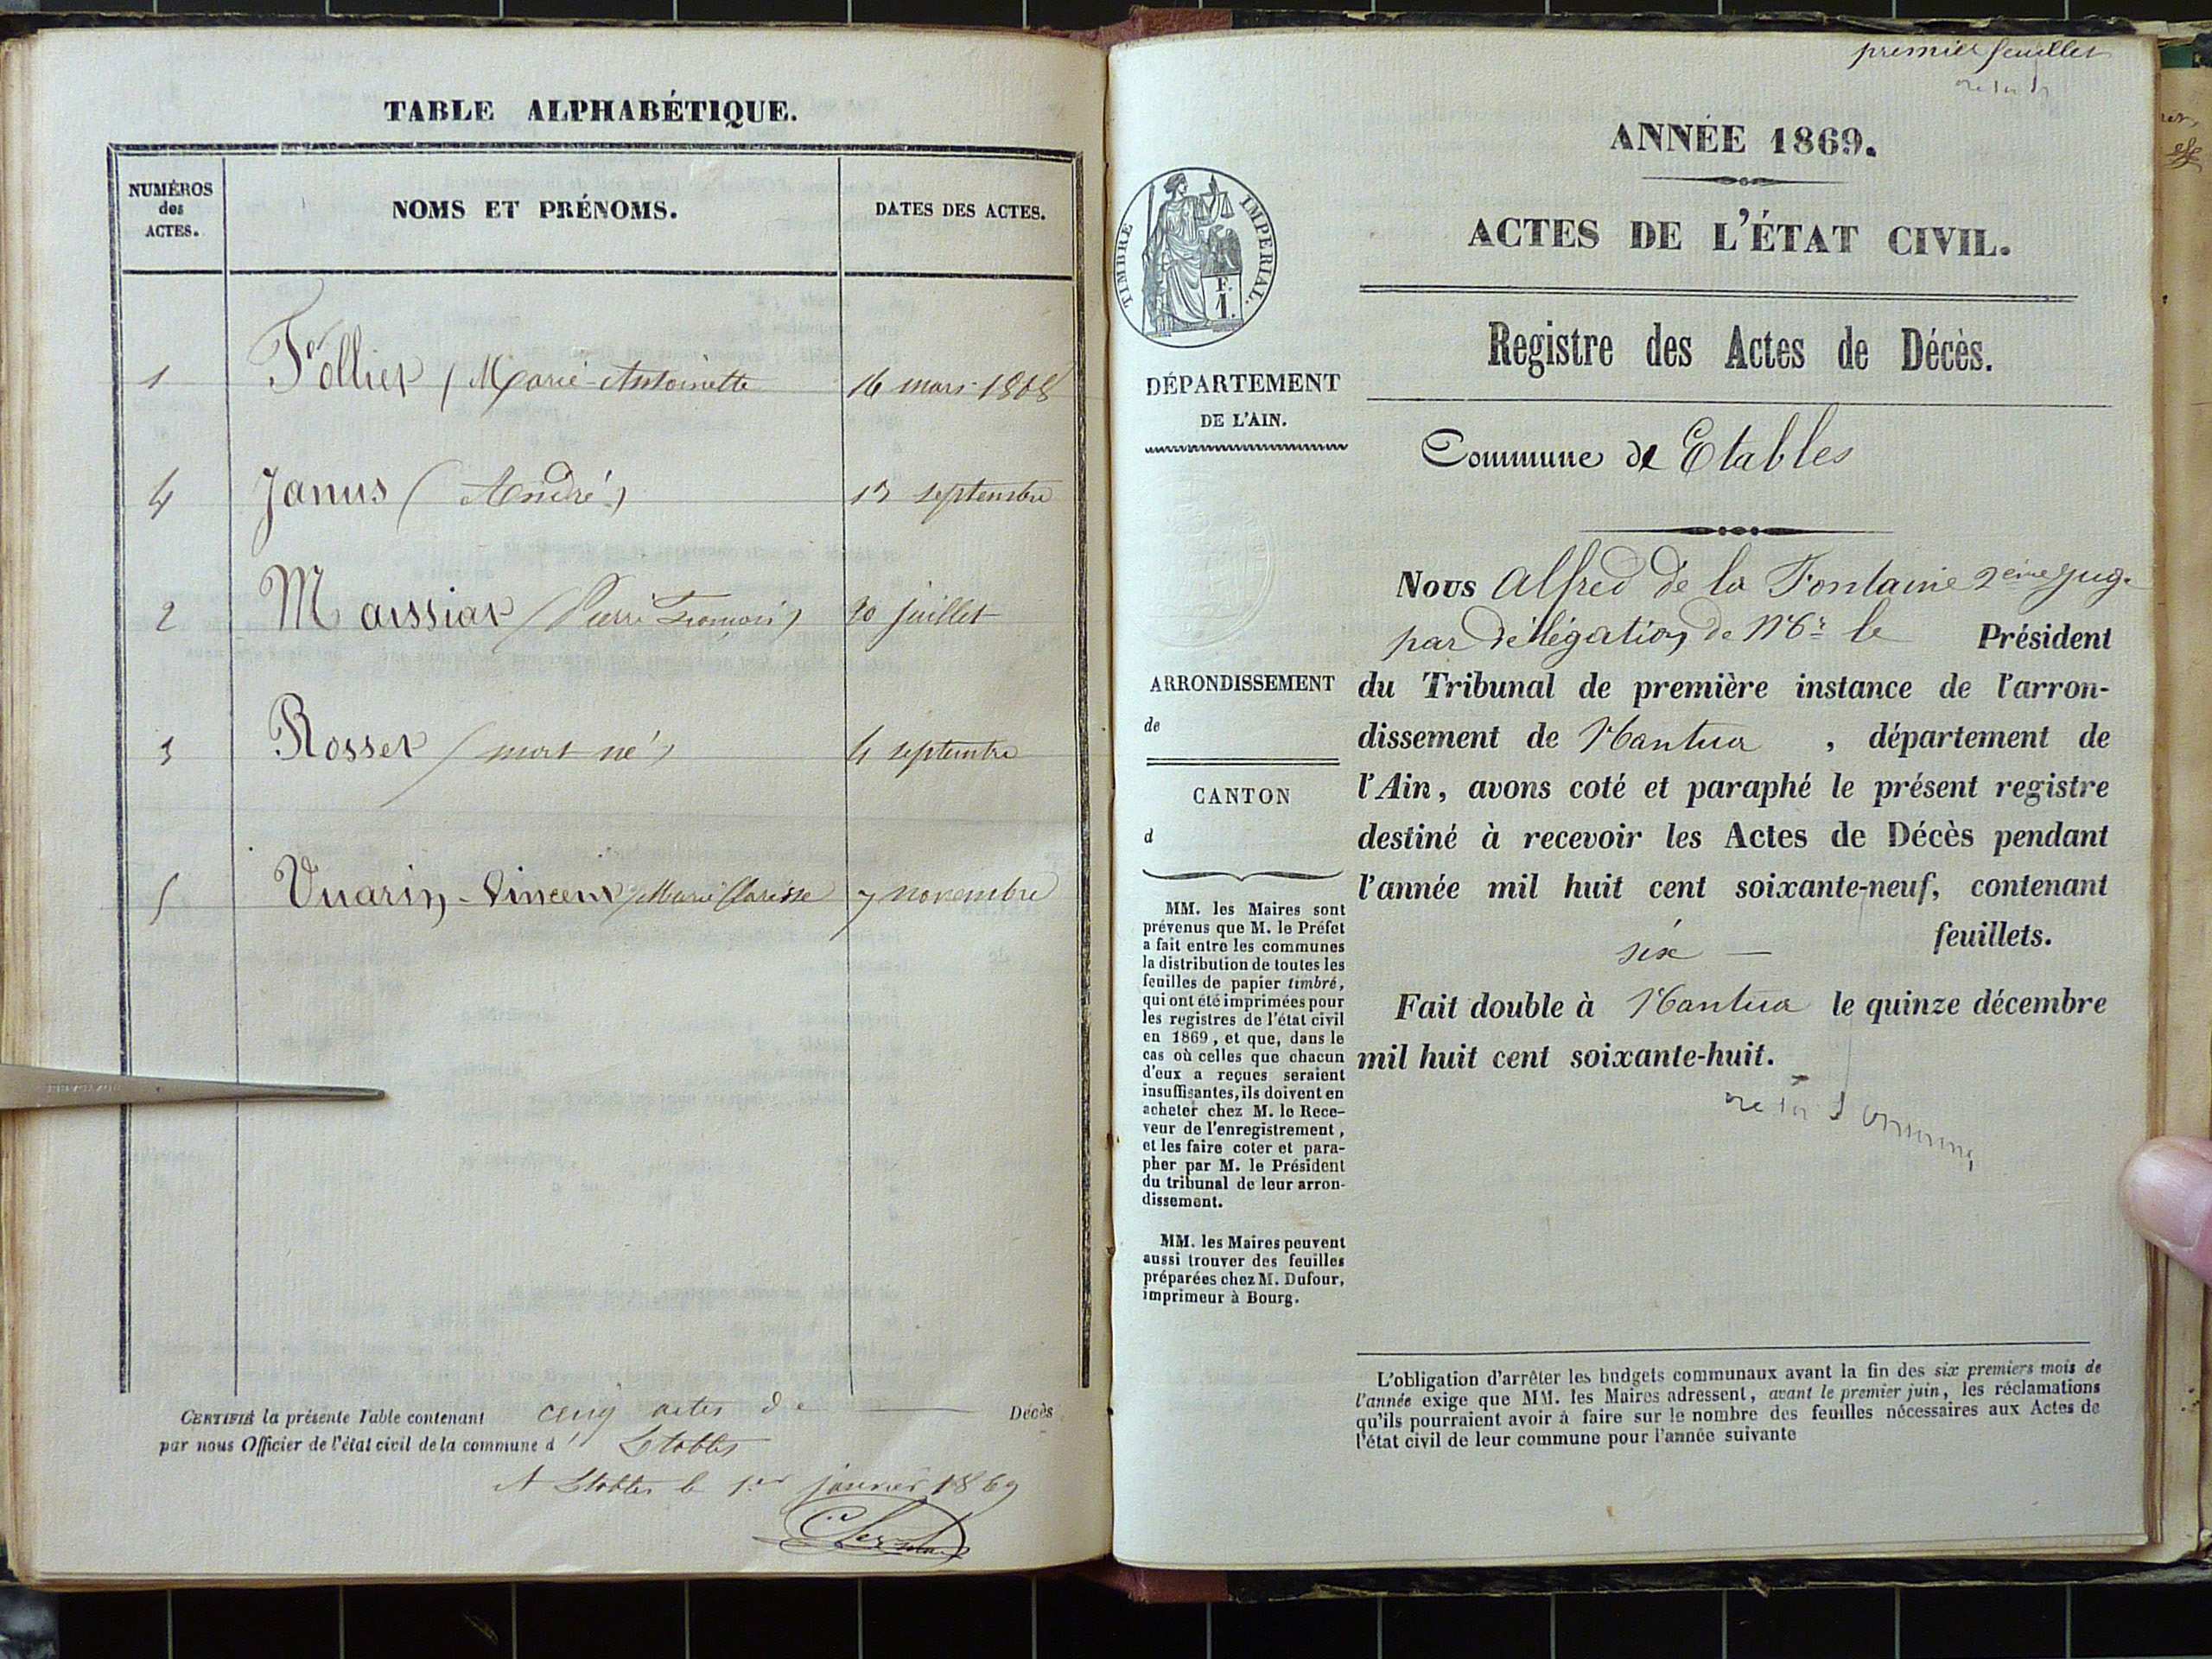 TABLE ALPHABÉTIQUE.
NUMÉROS
des
ACTES.
NOMS ET PRÉNOMS.
DATES DES ACTES.
1 Follier (Marie Antoinette 16 mars 1868
4 Janus (André) 13 septembre
2 Maissiat (Pierre François) 20 juillet
3 Rosset (mort né) 4 septembre
5 Vuarin-Vincent (Marie Clarisse 7 novembre
CERTIFIÉ la présente Table contenant cinq actes de Décès
par nous Officier de l'état civil de la commune d' Etables
A Etables le 1er janvier 1869
premier feuillet
ANNÉE 1869.
ACTES DE L'ÉTAT CIVIL.
TIMBRE IMPERIAL.
F.
1.
Registre des Actes de Décès.
DÉPARTEMENT
DE L'AIN.
Commune de Etables
Nous Alfred de la Fontaine 2ème juge
par délégation de Mr le Président
du Tribunal de première instance de l'arron-
dissement de Nantua , département de
l'Ain, avons coté et paraphé le présent registre
destiné à recevoir les Actes de Décès pendant
l'année mil huit cent soixante-neuf, contenant
six feuillets.
Fait double à Nantua le quinze décembre
mil huit cent soixante-huit.
ARRONDISSEMENT
de
CANTON
d
MM. les Maires sont
prévenus que M. le Préfet
a fait entre les communes
la distribution de toutes les
feuilles de papier timbré,
qui ont été imprimées pour
les registres de l'état civil
en 1869, et que, dans le
cas où celles que chacun
d'eux a reçues seraient
insuffisantes, ils doivent en
acheter chez M. le Rece-
veur de l'enregistrement,
et les faire coter et para-
pher par M. le Président
du tribunal de leur arron-
dissement.
MM. les Maires peuvent
aussi trouver des feuilles
préparées chez M. Dufour,
imprimeur à Bourg.
L'obligation d'arrêter les budgets communaux avant la fin des six premiers mois de
l'année exige que MM. les Maires adressent, avant le premier juin, les réclamations
qu'ils pourraient avoir à faire sur le nombre des feuilles nécessaires aux Actes de
l'état civil de leur commune pour l'année suivante